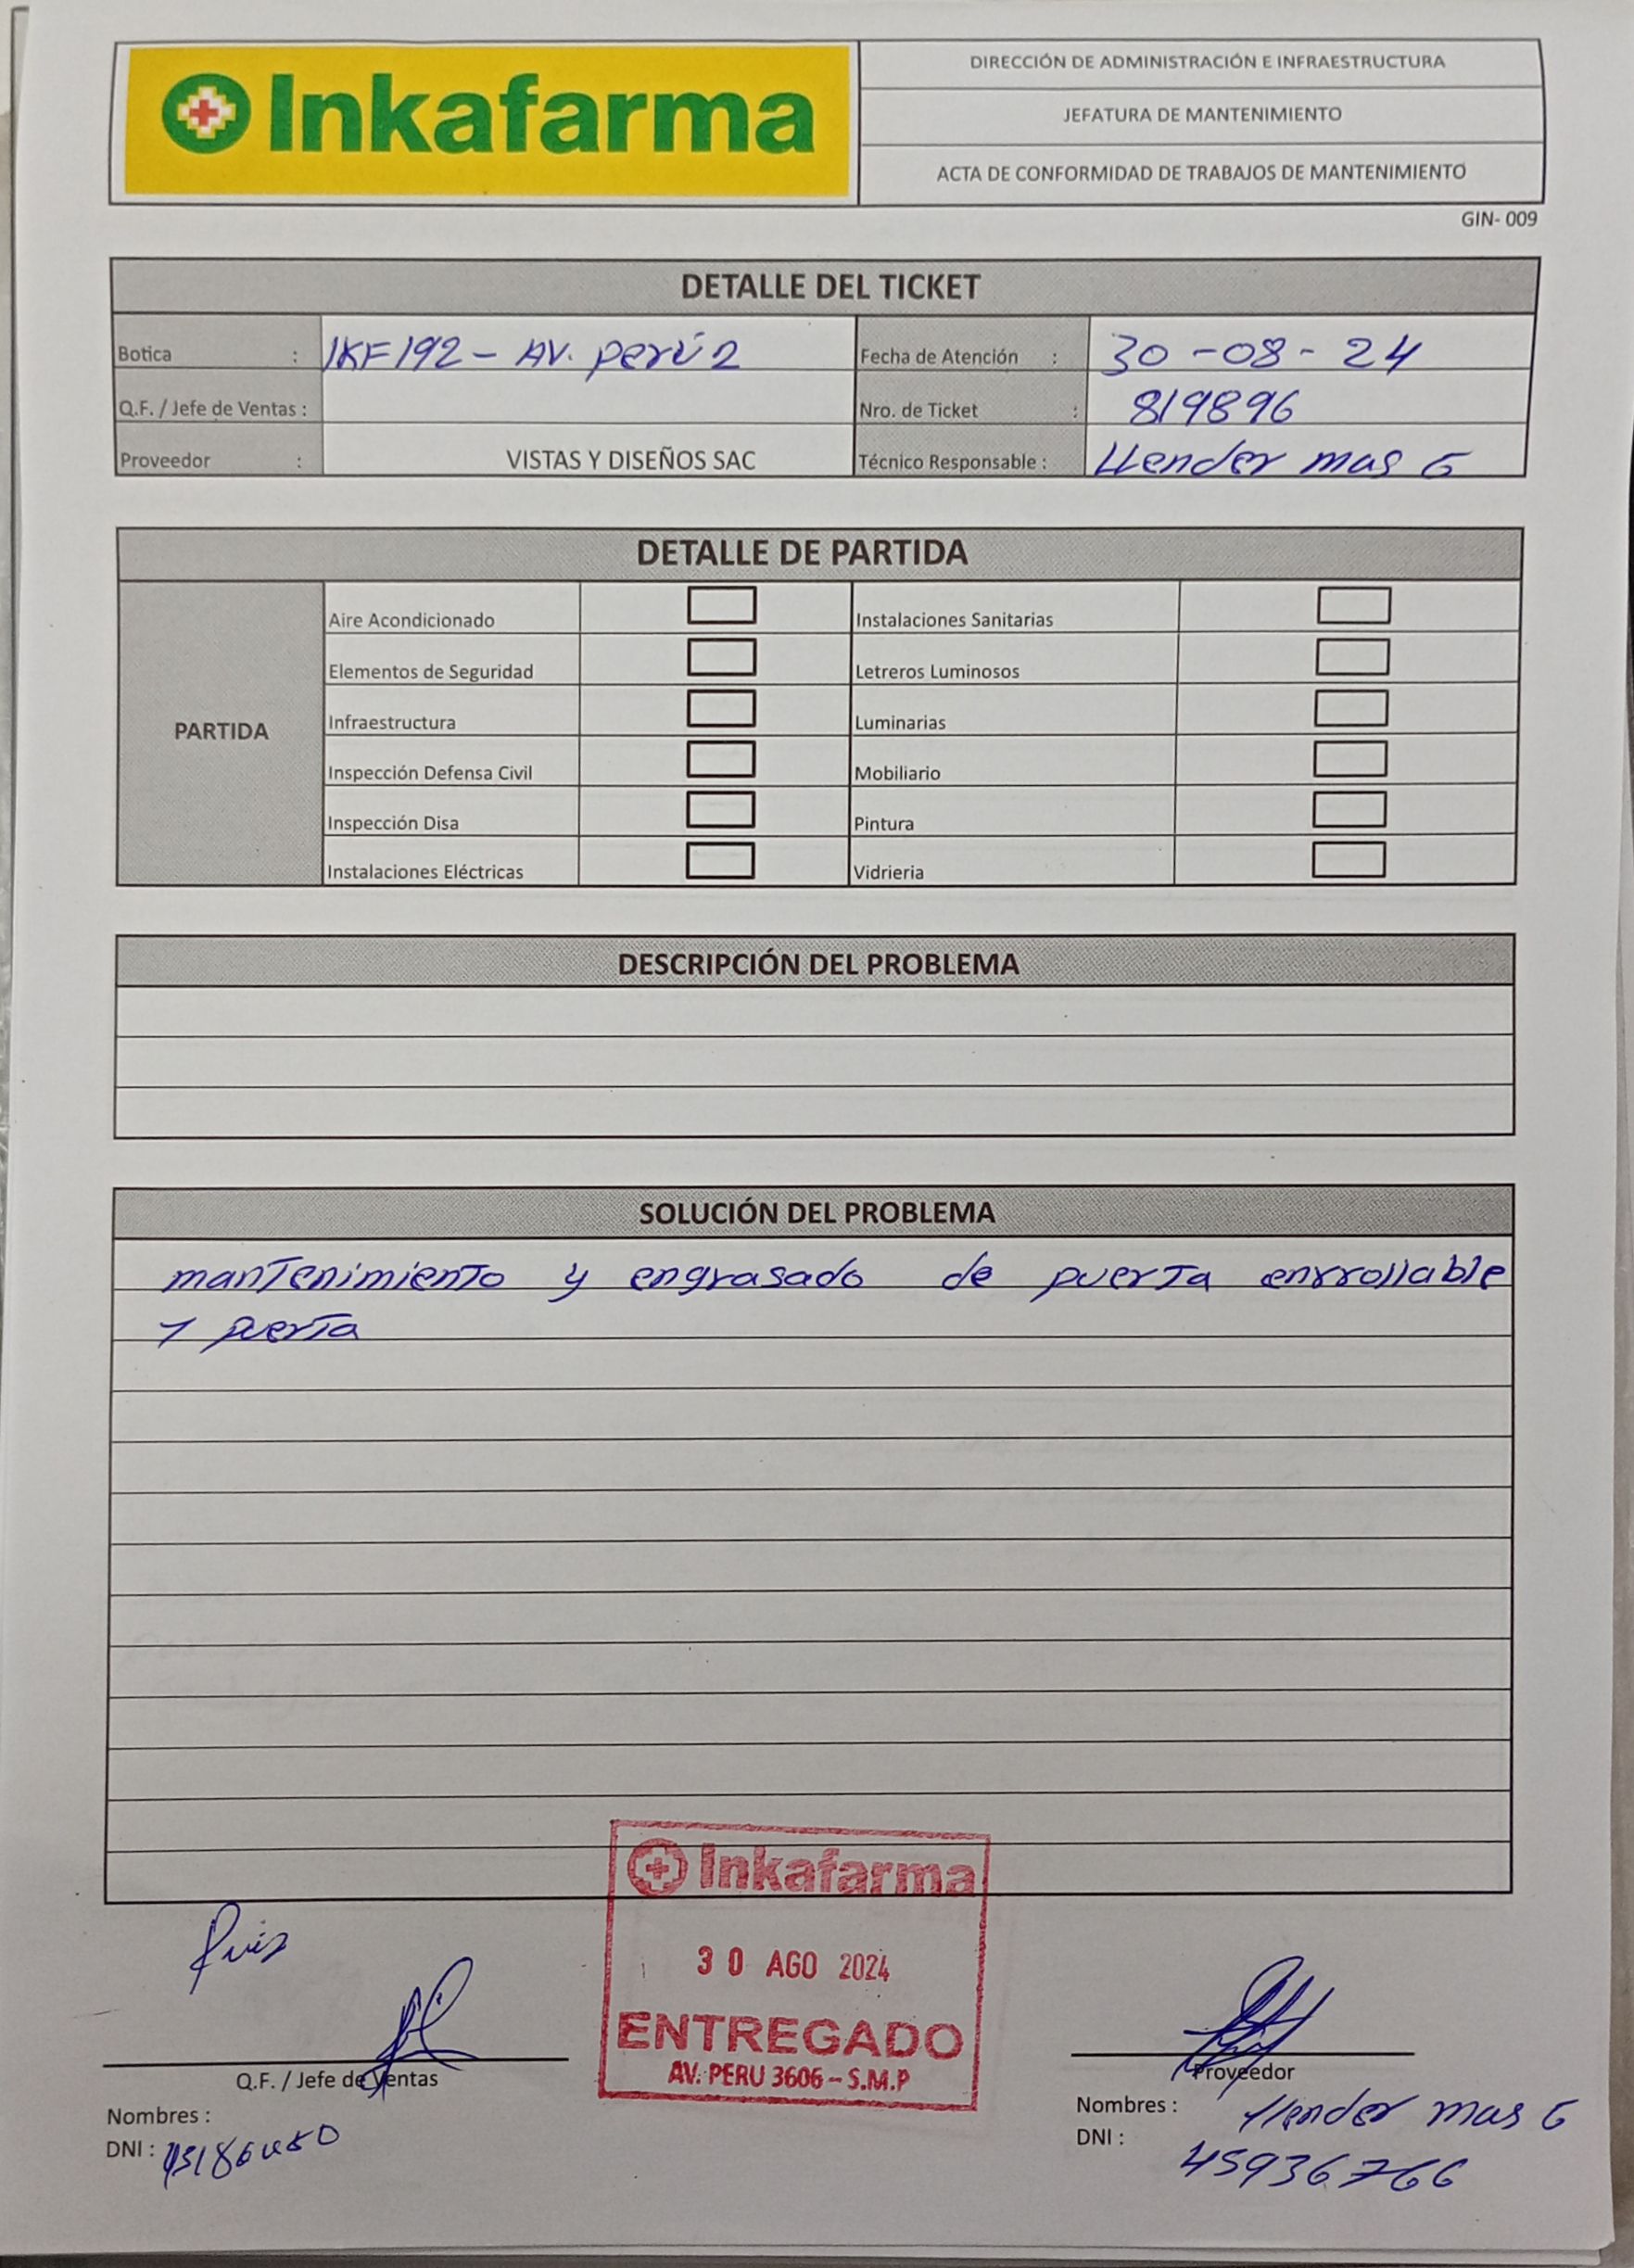 Inkafarma
DIRECCIÓN DE ADMINISTRACIÓN E INFRAESTRUCTURA
JEFATURA DE MANTENIMIENTO
ACTA DE CONFORMIDAD DE TRABAJOS DE MANTENIMIENTO
GIN- 009
DETALLE DEL TICKET
Botica : IKF192 - AV. Perú 2 Fecha de Atención : 30 - 08 - 24
Q.F. / Jefe de Ventas : Nro. de Ticket : 819896
Proveedor : VISTAS Y DISEÑOS SAC Técnico Responsable : LLender mas G
DETALLE DE PARTIDA
PARTIDA
Aire Acondicionado Instalaciones Sanitarias
Elementos de Seguridad Letreros Luminosos
Infraestructura Luminarias
Inspección Defensa Civil Mobiliario
Inspección Disa Pintura
Instalaciones Eléctricas Vidrieria
DESCRIPCIÓN DEL PROBLEMA
SOLUCIÓN DEL PROBLEMA
mantenimiento y engrasado de puerta enrrollable
1 puerta
Inkafarma
30 AGO 2024
ENTREGADO
AV. PERU 3606 - S.M.P
Q.F. / Jefe de Ventas
Nombres :
DNI :
Proveedor
Nombres : LLender mas G
DNI : 45936766